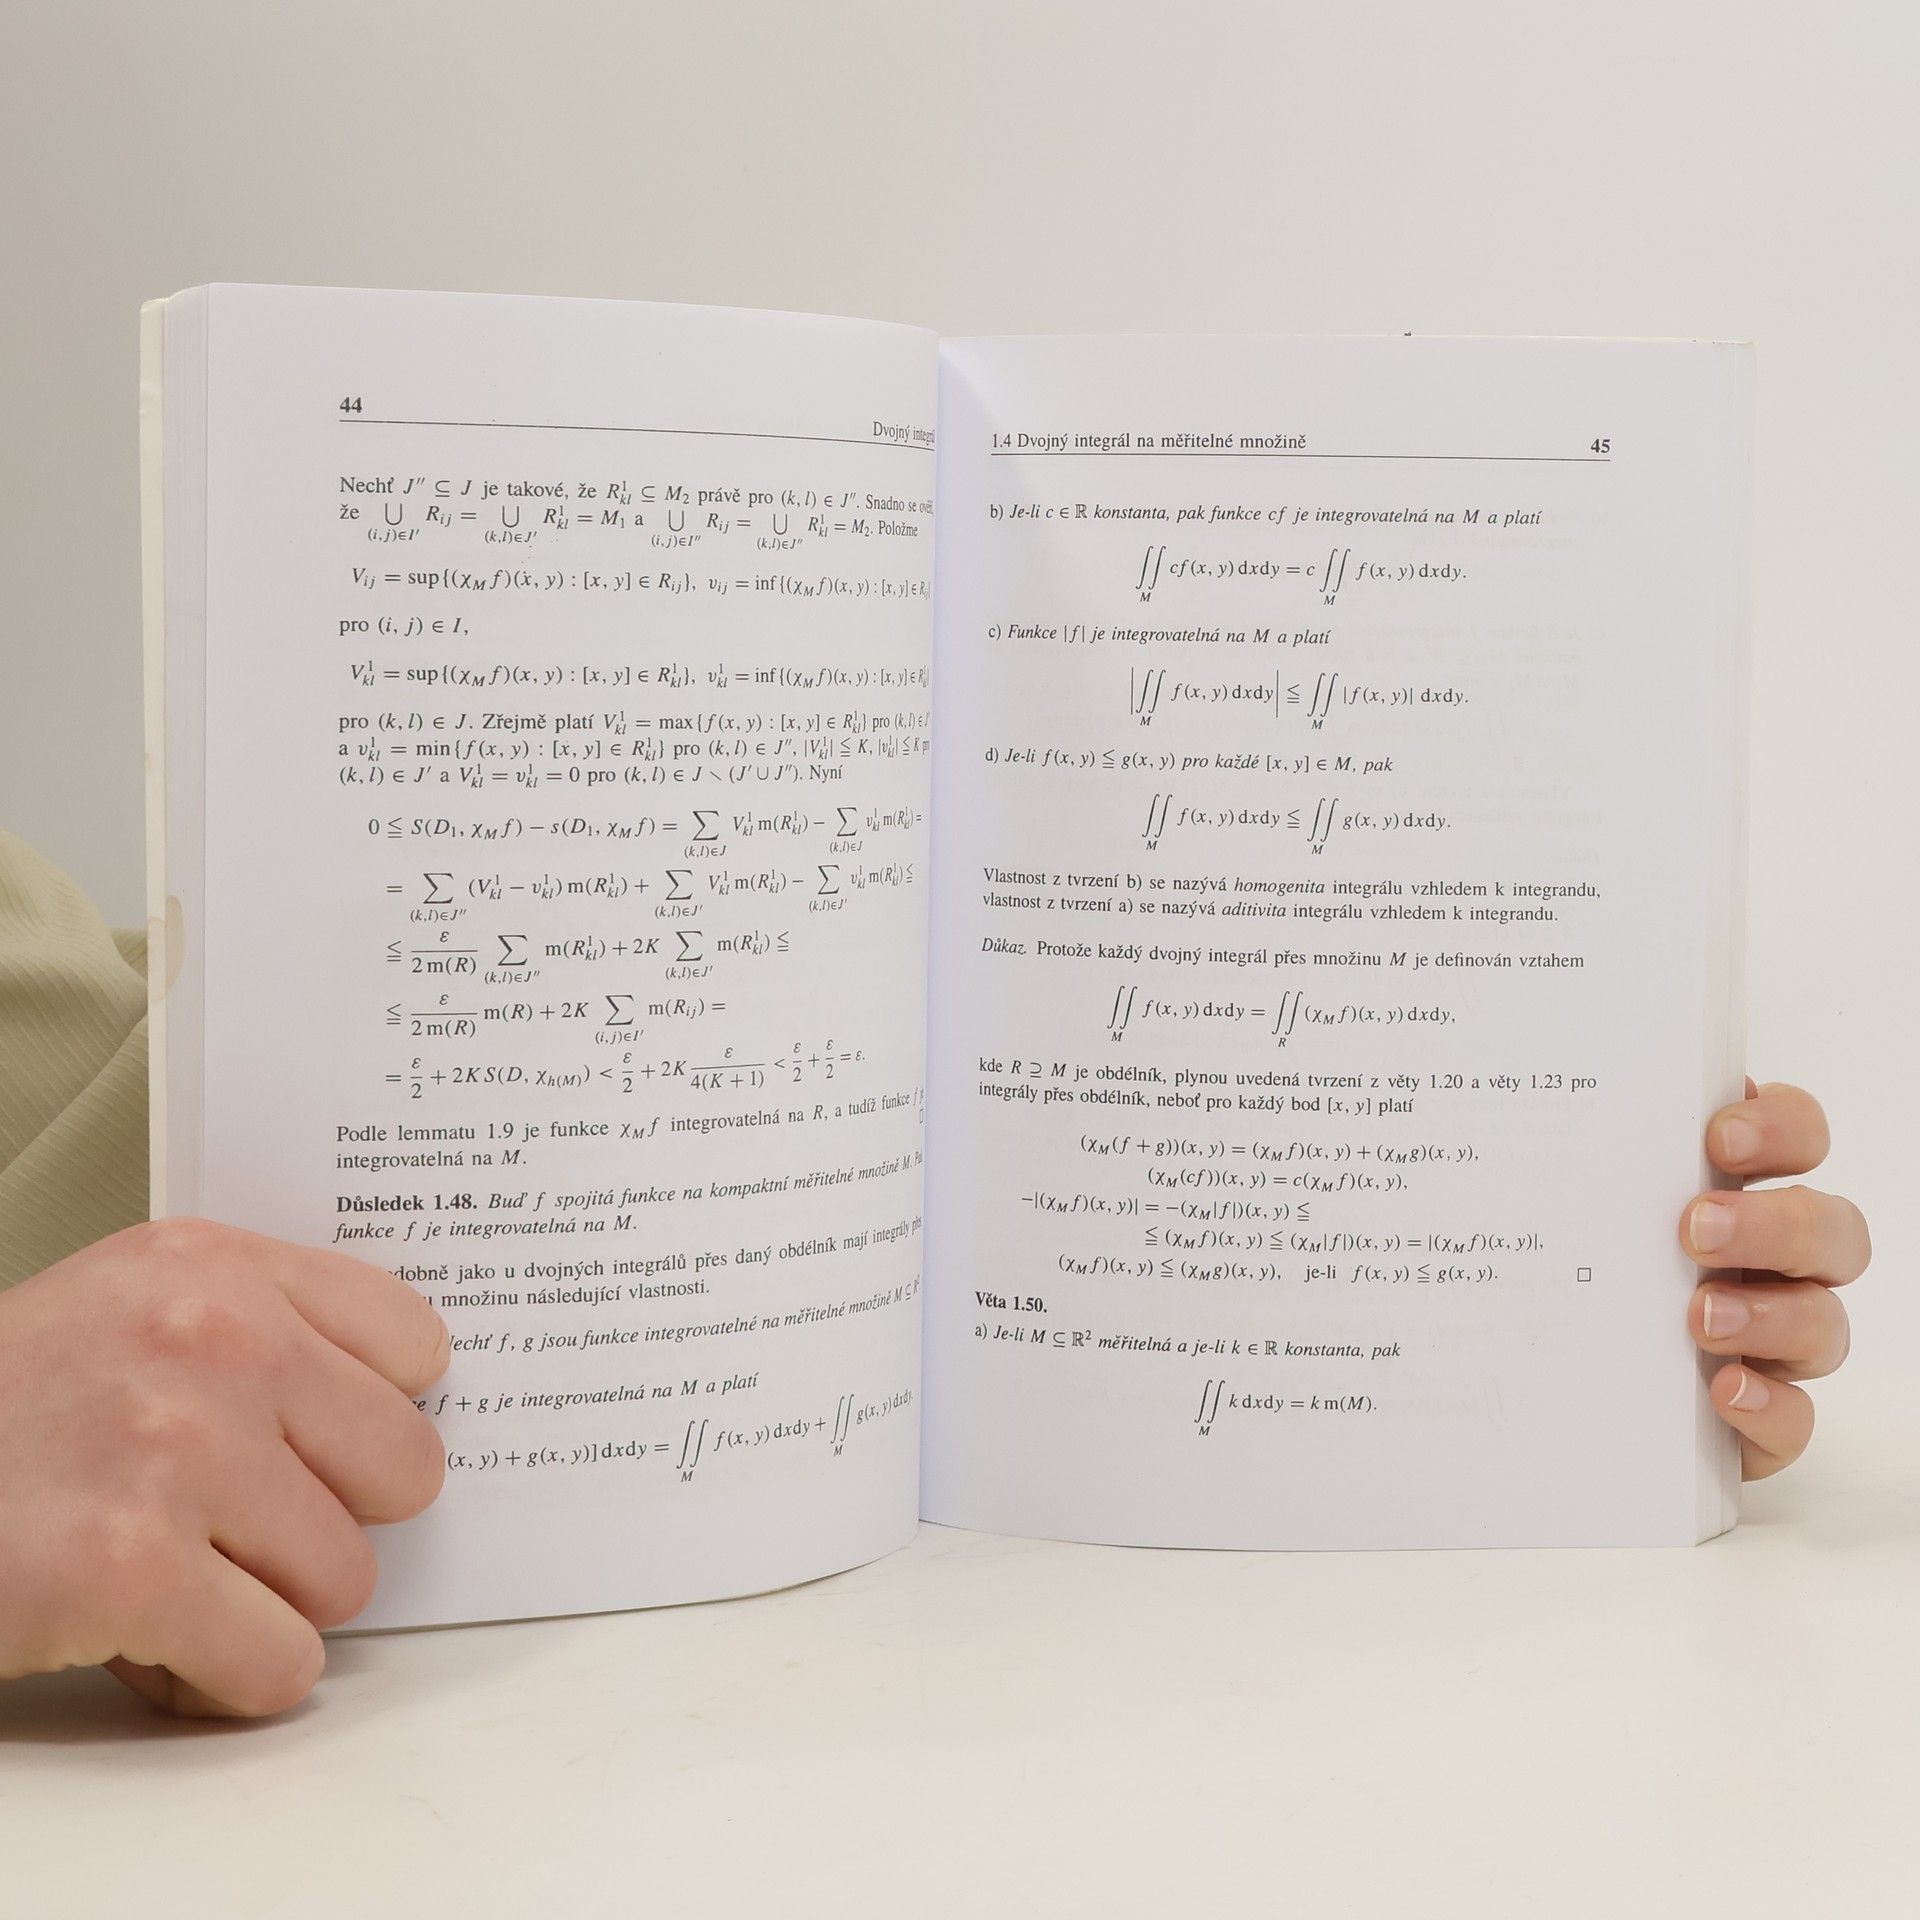 44
Dvojný
Nechť J″ ⊆ J je takové, že R¹ₖₗ ⊆ M₂ právě pro (k, l) ∈ J″. Snadno se
že ⋃_{(i,j)∈I′} Rᵢⱼ = ⋃_{(k,l)∈J′} R¹ₖₗ = M₁ a ⋃_{(i,j)∈I″} Rᵢⱼ = ⋃_{(k,l)∈J″} R¹ₖₗ = M₂. Položme
Vᵢⱼ = sup{(χ_M f)(x, y) : [x, y] ∈ Rᵢⱼ}, vᵢⱼ = inf{(χ_M f)(x, y) : [x, y] ∈ Rᵢⱼ}
pro (i, j) ∈ I,
V¹ₖₗ = sup{(χ_M f)(x, y) : [x, y] ∈ R¹ₖₗ}, v¹ₖₗ = inf{(χ_M f)(x, y) : [x, y] ∈ R¹ₖₗ}
pro (k, l) ∈ J. Zřejmě platí V¹ₖₗ = max{f(x, y) : [x, y] ∈ R¹ₖₗ} pro (k, l) ∈
a v¹ₖₗ = min{f(x, y) : [x, y] ∈ R¹ₖₗ} pro (k, l) ∈ J″, |V¹ₖₗ| ≦ K, |v¹ₖₗ| ≦ K
(k, l) ∈ J′ a V¹ₖₗ = v¹ₖₗ = 0 pro (k, l) ∈ J ∖ (J′ ∪ J″). Nyní
0 ≦ S(D₁, χ_M f) − s(D₁, χ_M f) = ∑_{(k,l)∈J} V¹ₖₗ m(R¹ₖₗ) − ∑_{(k,l)∈J} v¹ₖₗ m(R¹ₖₗ) =
= ∑_{(k,l)∈J″} (V¹ₖₗ − v¹ₖₗ) m(R¹ₖₗ) + ∑_{(k,l)∈J′} V¹ₖₗ m(R¹ₖₗ) − ∑_{(k,l)∈J′} v¹ₖₗ m(R¹ₖₗ) ≦
≦ ε/(2 m(R)) ∑_{(k,l)∈J″} m(R¹ₖₗ) + 2K ∑_{(k,l)∈J′} m(R¹ₖₗ) ≦
≦ ε/(2 m(R)) m(R) + 2K ∑_{(i,j)∈I′} m(Rᵢⱼ) =
= ε/2 + 2K S(D, χ_{h(M)}) < ε/2 + 2K ε/(4(K + 1)) < ε/2 + ε/2 = ε.
Podle lemmatu 1.9 je funkce χ_M f integrovatelná na R, a tudíž funkce f
integrovatelná na M. □
Důsledek 1.48. Buď f spojitá funkce na kompaktní měřitelné množině M.
funkce f je integrovatelná na M.
dobně jako u dvojných integrálů přes daný obdélník mají integrály přes
množinu následující vlastnosti.
echť f, g jsou funkce integrovatelné na měřitelné množině M ⊆ ℝ²
f + g je integrovatelná na M a platí
(x, y) + g(x, y)] dxdy = ∬_M f(x, y) dxdy + ∬_M g(x, y) dxdy.
1.4 Dvojný integrál na měřitelné množině 45
b) Je-li c ∈ ℝ konstanta, pak funkce cf je integrovatelná na M a platí
∬_M cf(x, y) dxdy = c ∬_M f(x, y) dxdy.
c) Funkce |f| je integrovatelná na M a platí
|∬_M f(x, y) dxdy| ≦ ∬_M |f(x, y)| dxdy.
d) Je-li f(x, y) ≦ g(x, y) pro každé [x, y] ∈ M, pak
∬_M f(x, y) dxdy ≦ ∬_M g(x, y) dxdy.
Vlastnost z tvrzení b) se nazývá homogenita integrálu vzhledem k integrandu,
vlastnost z tvrzení a) se nazývá aditivita integrálu vzhledem k integrandu.
Důkaz. Protože každý dvojný integrál přes množinu M je definován vztahem
∬_M f(x, y) dxdy = ∬_R (χ_M f)(x, y) dxdy,
kde R ⊇ M je obdélník, plynou uvedená tvrzení z věty 1.20 a věty 1.23 pro
integrály přes obdélník, neboť pro každý bod [x, y] platí
(χ_M(f + g))(x, y) = (χ_M f)(x, y) + (χ_M g)(x, y),
(χ_M(cf))(x, y) = c(χ_M f)(x, y),
−|(χ_M f)(x, y)| = −(χ_M|f|)(x, y) ≦
≦ (χ_M f)(x, y) ≦ (χ_M|f|)(x, y) = |(χ_M f)(x, y)|,
(χ_M f)(x, y) ≦ (χ_M g)(x, y), je-li f(x, y) ≦ g(x, y). □
Věta 1.50.
a) Je-li M ⊆ ℝ² měřitelná a je-li k ∈ ℝ konstanta, pak
∬_M k dxdy = k m(M).